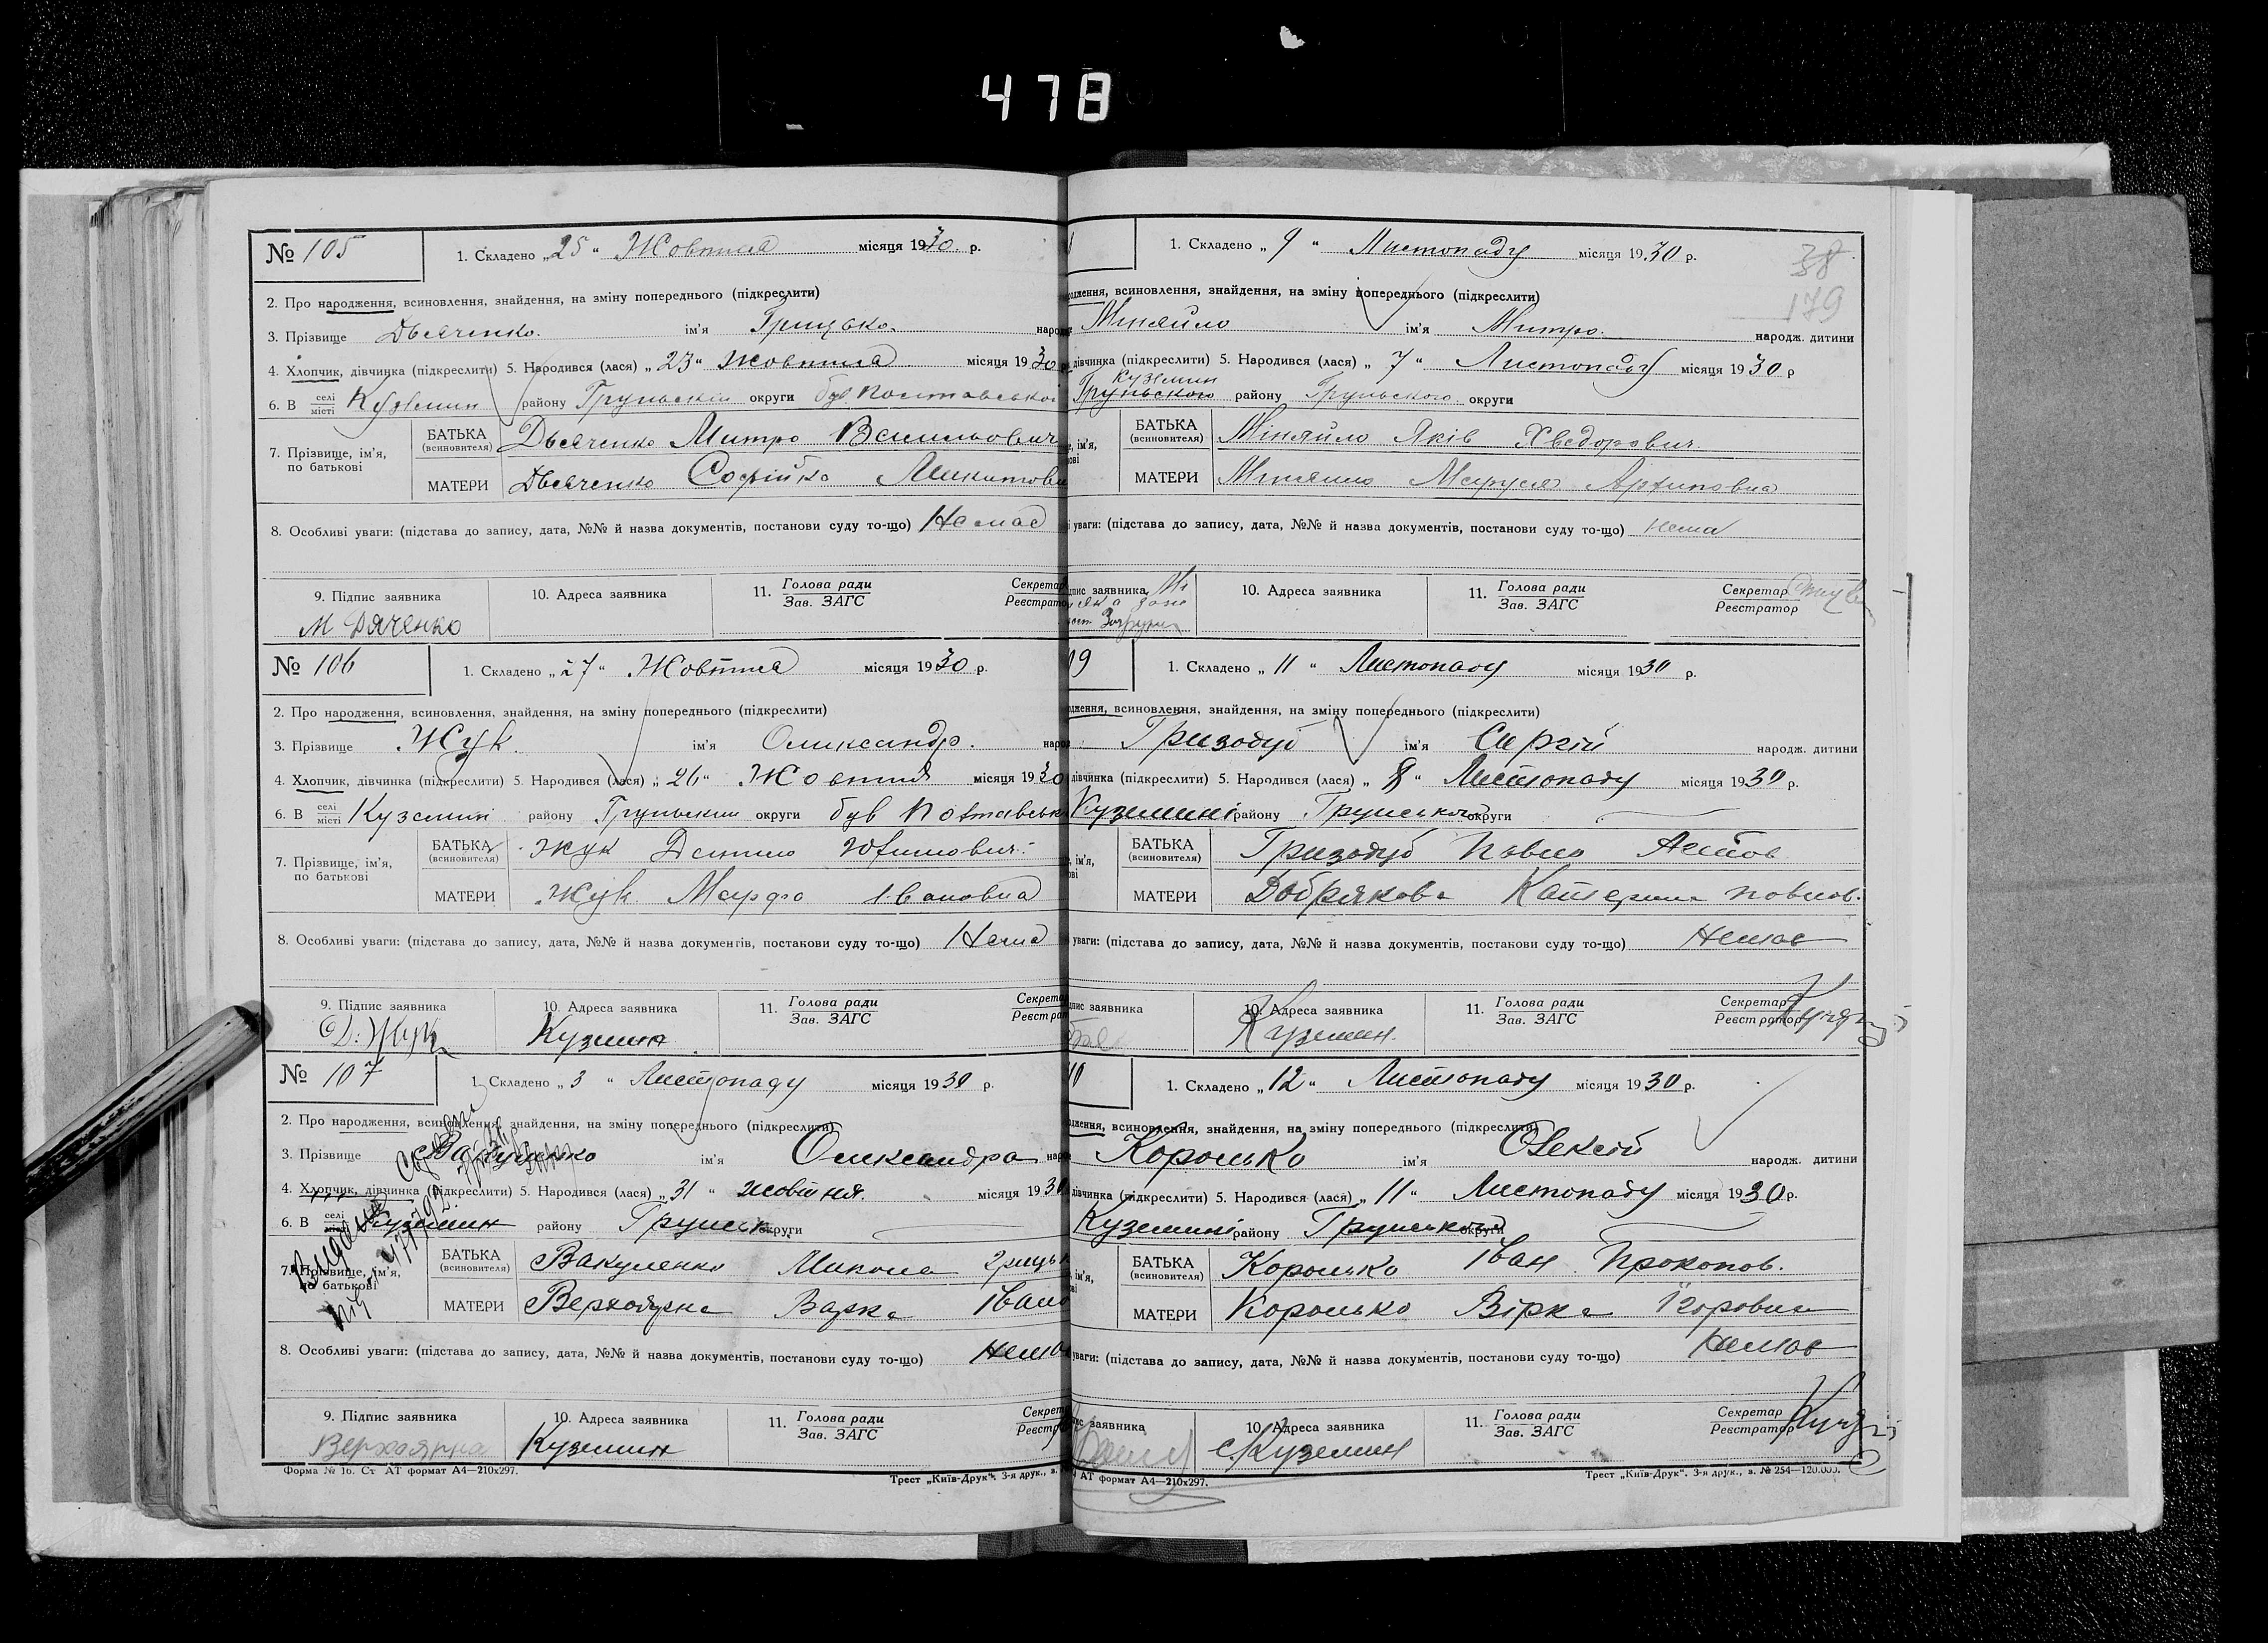 478
№ 105
1. Складено „25“ Жовтня місяця 1930 р.
2. Про народження, всиновлення, знайдення, на зміну попереднього (підкреслити)
3. Прізвище Дьяченко ім'я Грицько народ
4. Хлопчик, дівчинка (підкреслити) 5. Народився (лася) „23“ Жовтня місяця 1930
6. В селі місті Куземин району Груньский округи був Полтавської
7. Прізвище, ім'я, по батькові
БАТЬКА (всиновителя) Дьяченко Митро Васильович
МАТЕРИ Дьяченко Софійка Микитовн
8. Особливі уваги: (підстава до запису, дата, №№ й назва документів, постанови суду то-що) Немає
9. Підпис заявника 10. Адреса заявника 11. Голова ради Зав. ЗАГС Секретар Реєстратор
М Дяченко
№ 106
1. Складено „27“ Жовтня місяця 1930 р.
2. Про народження, всиновлення, знайдення, на зміну попереднього (підкреслити)
3. Прізвище Жук ім'я Олександр. народ
4. Хлопчик, дівчинка (підкреслити) 5. Народився (лася) „26“ Жовтня місяця 1930
6. В селі місті Куземині району Груньский округи був Полтавськ
7. Прізвище, ім'я, по батькові
БАТЬКА (всиновителя) Жук Юхимович
МАТЕРИ Жук Марфа Івановна
8. Особливі уваги: (підстава до запису, дата, №№ й назва документів, постанови суду то-що) Нема
9. Підпис заявника 10. Адреса заявника 11. Голова ради Зав. ЗАГС Секретар Реєстрат
Д. Жук Куземин
№ 107
1. Складено „3“ Листопаду місяця 1930 р.
2. Про народження, всиновлення, знайдення, на зміну попереднього (підкреслити)
3. Прізвище Вакуленко ім'я Олександра наро
4. Хлопчик, дівчинка (підкреслити) 5. Народився (лася) „31“ жовтня місяця 1930
6. В селі місті Куземин району Грунськ округи
7. Прізвище, ім'я, по батькові
БАТЬКА (всиновителя) Вакуленко Микола Грицьк
МАТЕРИ Верхоярна Варка Івано
8. Особливі уваги: (підстава до запису, дата, №№ й назва документів, постанови суду то-що) Нема
9. Підпис заявника 10. Адреса заявника 11. Голова ради Зав. ЗАГС Секрет Реєстр
Верхоярна Куземин
Форма № 16. Ст АТ формат А4—210х297. Трест „Київ-Друк“. 3-я друк., з.
38
179
1. Складено „9“ Листопаду місяця 1930 р.
одження, всиновлення, знайдення, на зміну попереднього (підкреслити)
Міняйло ім'я Митро народж. дитини
дівчинка (підкреслити) 5. Народився (лася) „7“ Листопаду місяця 1930 р
Куземин
Груньского району Груньского округи
е, ім'я, ові
БАТЬКА (всиновителя) Міняйло Яків Хведорович
МАТЕРИ Міняйло Маруся Архиповна
уваги: (підстава до запису, дата, №№ й назва документів, постанови суду то-що) Нема
пис заявника 10. Адреса заявника 11. Голова ради Зав. ЗАГС Секретар Реєстратор
09
1. Складено „11“ Листопаду місяця 1930 р.
одження, всиновлення, знайдення, на зміну попереднього (підкреслити)
Гризодуб ім'я Сергій народж. дитини
дівчинка (підкреслити) 5. Народився (лася) „8“ Листопаду місяця 1930 р.
Куземині району Грунського округи
е, ім'я, ові
БАТЬКА (всиновителя) Гризодуб Павло
МАТЕРИ Добрякова Катерина Повлов.
уваги: (підстава до запису, дата, №№ й назва документів, постанови суду то-що) Немає
пис заявника 10. Адреса заявника 11. Голова ради Зав. ЗАГС Секретар Реєстратор
Куземин
10
1. Складено „12“ Листопаду місяця 1930 р.
одження, всиновлення, знайдення, на зміну попереднього (підкреслити)
Королько ім'я Олексій народж. дитини
дівчинка (підкреслити) 5. Народився (лася) „11“ Листопаду місяця 1930 р.
Куземині району Грунського округи
е, ім'я, ові
БАТЬКА (всиновителя) Королько Іван Прокопов.
МАТЕРИ Королько Вірка Єгоровна
уваги: (підстава до запису, дата, №№ й назва документів, постанови суду то-що) Немає
ис заявника 10. Адреса заявника 11. Голова ради Зав. ЗАГС Секретар Реєстратор
с. Куземин
АТ формат А4—210х297. Трест „Київ-Друк“. 3-я друк., з. № 254—120.000.